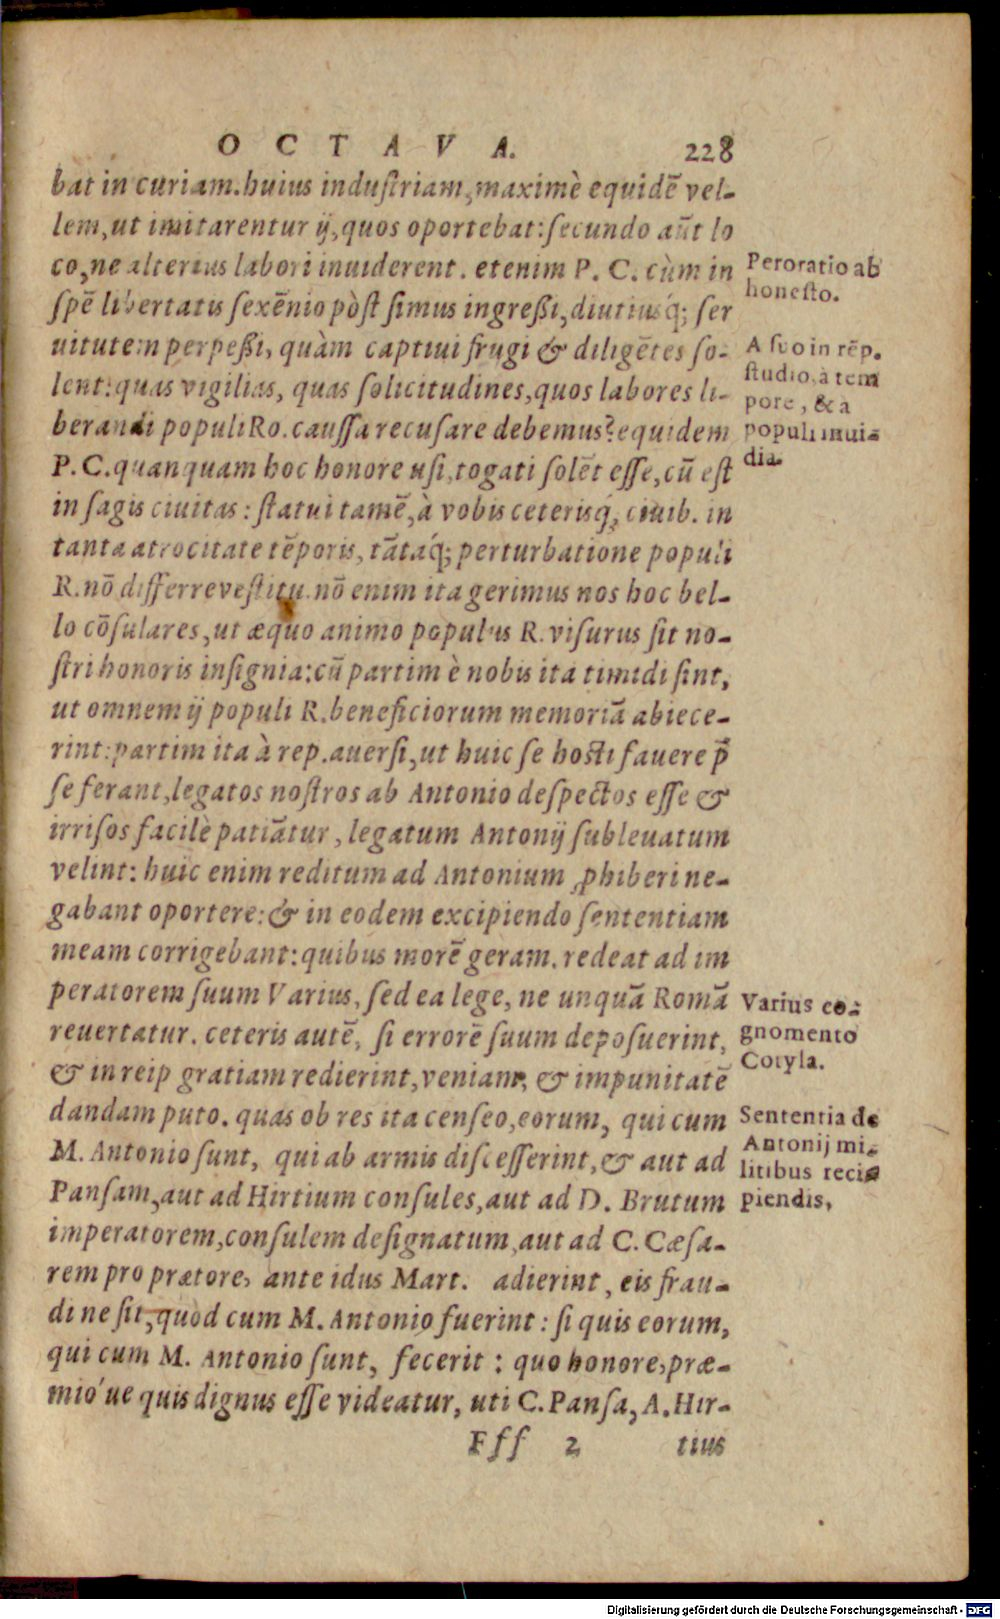 OCTAVA. 228
bat in curiam. huius industriam, maximè equidē vel-
lem, ut imitarentur ij, quos oportebat: secundo aūt lo
co, ne alterius labori inuiderent. etenim P. C. cùm in
spē libertatis sexēnio pòst simus ingreßi, diutiusq́; ser
uitutem perpeßi, quàm captiui frugi & diligētes so-
lent: quas vigilias, quas solicitudines, quos labores li-
berandi populi Ro. caussa recusare debemus? equidem
P. C. quanquam hoc honore usi, togati solēt esse, cū est
in sagis ciuitas: statui tamē, à vobis ceterisq́; ciuib. in
tanta atrocitate tēporis, tātaq́; perturbatione populi
R. nō differre vestitu. nō enim ita gerimus nos hoc bel-
lo cōsulares, ut æquo animo populus R. visurus sit no-
stri honoris insignia: cū partim è nobis ita timidi sint,
ut omnem ij populi R. beneficiorum memoriā abiece-
rint: partim ita à rep. auersi, ut huic se hosti fauere p̄
se ferant, legatos nostros ab Antonio despectos esse &
irrisos facilè patiātur, legatum Antonij subleuatum
velint: huic enim reditum ad Antonium ꝓhiberi ne-
gabant oportere: & in eodem excipiendo sententiam
meam corrigebant: quibus morē geram. redeat ad im
peratorem suum Varius, sed ea lege, ne unquā Romā
reuertatur. ceteris autē, si errorē suum deposuerint,
& in reip gratiam redierint, veniam, & impunitatē
dandam puto. quas ob res ita censeo, eorum, qui cum
M. Antonio sunt, qui ab armis discesserint, & aut ad
Pansam, aut ad Hirtium consules, aut ad D. Brutum
imperatorem, consulem designatum, aut ad C. Cæsa-
rem pro prætore, ante idus Mart. adierint, eis frau-
di ne sit, quòd cum M. Antonio fuerint: si quis eorum,
qui cum M. Antonio sunt, fecerit: quo honore, præ-
mio'ue quis dignus esse videatur, uti C. Pansa, A. Hir-
Fff 2 tius
Peroratio ab
honesto.
A suo in rēp.
studio, à tem
pore, & a
populi inui-
dia.
Varius co-
gnomento
Cotyla.
Sententia de
Antonij mi-
litibus reci-
piendis.
Digitalisierung gefördert durch die Deutsche Forschungsgemeinschaft - DFG